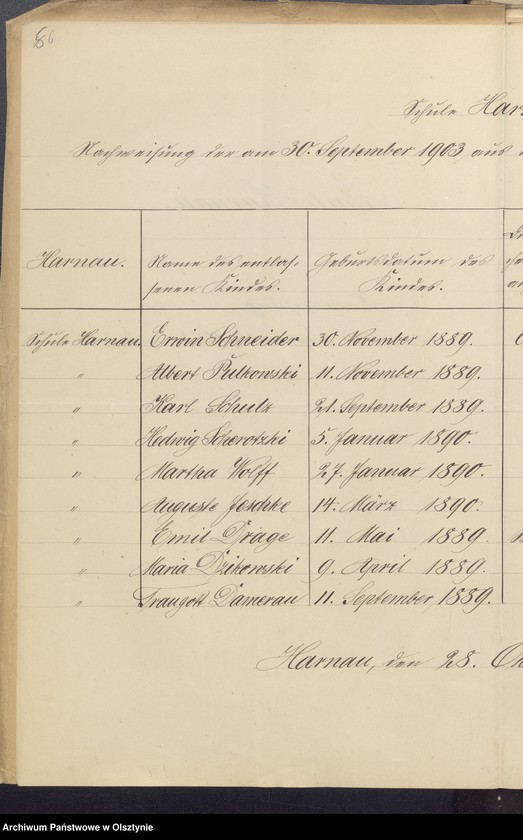 86
Schule Har
Nachweisung der am 30. September 1903 aus
Harnau. Name des entlas- Geburtsdatum des
senen Kindes. Kindes.
Schule Harnau. Erwin Schneider 30. November 1889.
" Albert Rutkowski 11. November 1889.
" Karl Schulz 21. September 1889.
" Hedwig 5. Januar 1890.
" Martha Wolff 27. Januar 1890.
" Auguste Jeschke 14. März 1890.
" Emil Drage 11. Mai 1889.
" Maria Dzikowski 9. April 1889.
" Traugott Damerau 11. September 1889.
Harnau, den 28. Ok
Archiwum Państwowe w Olsztynie